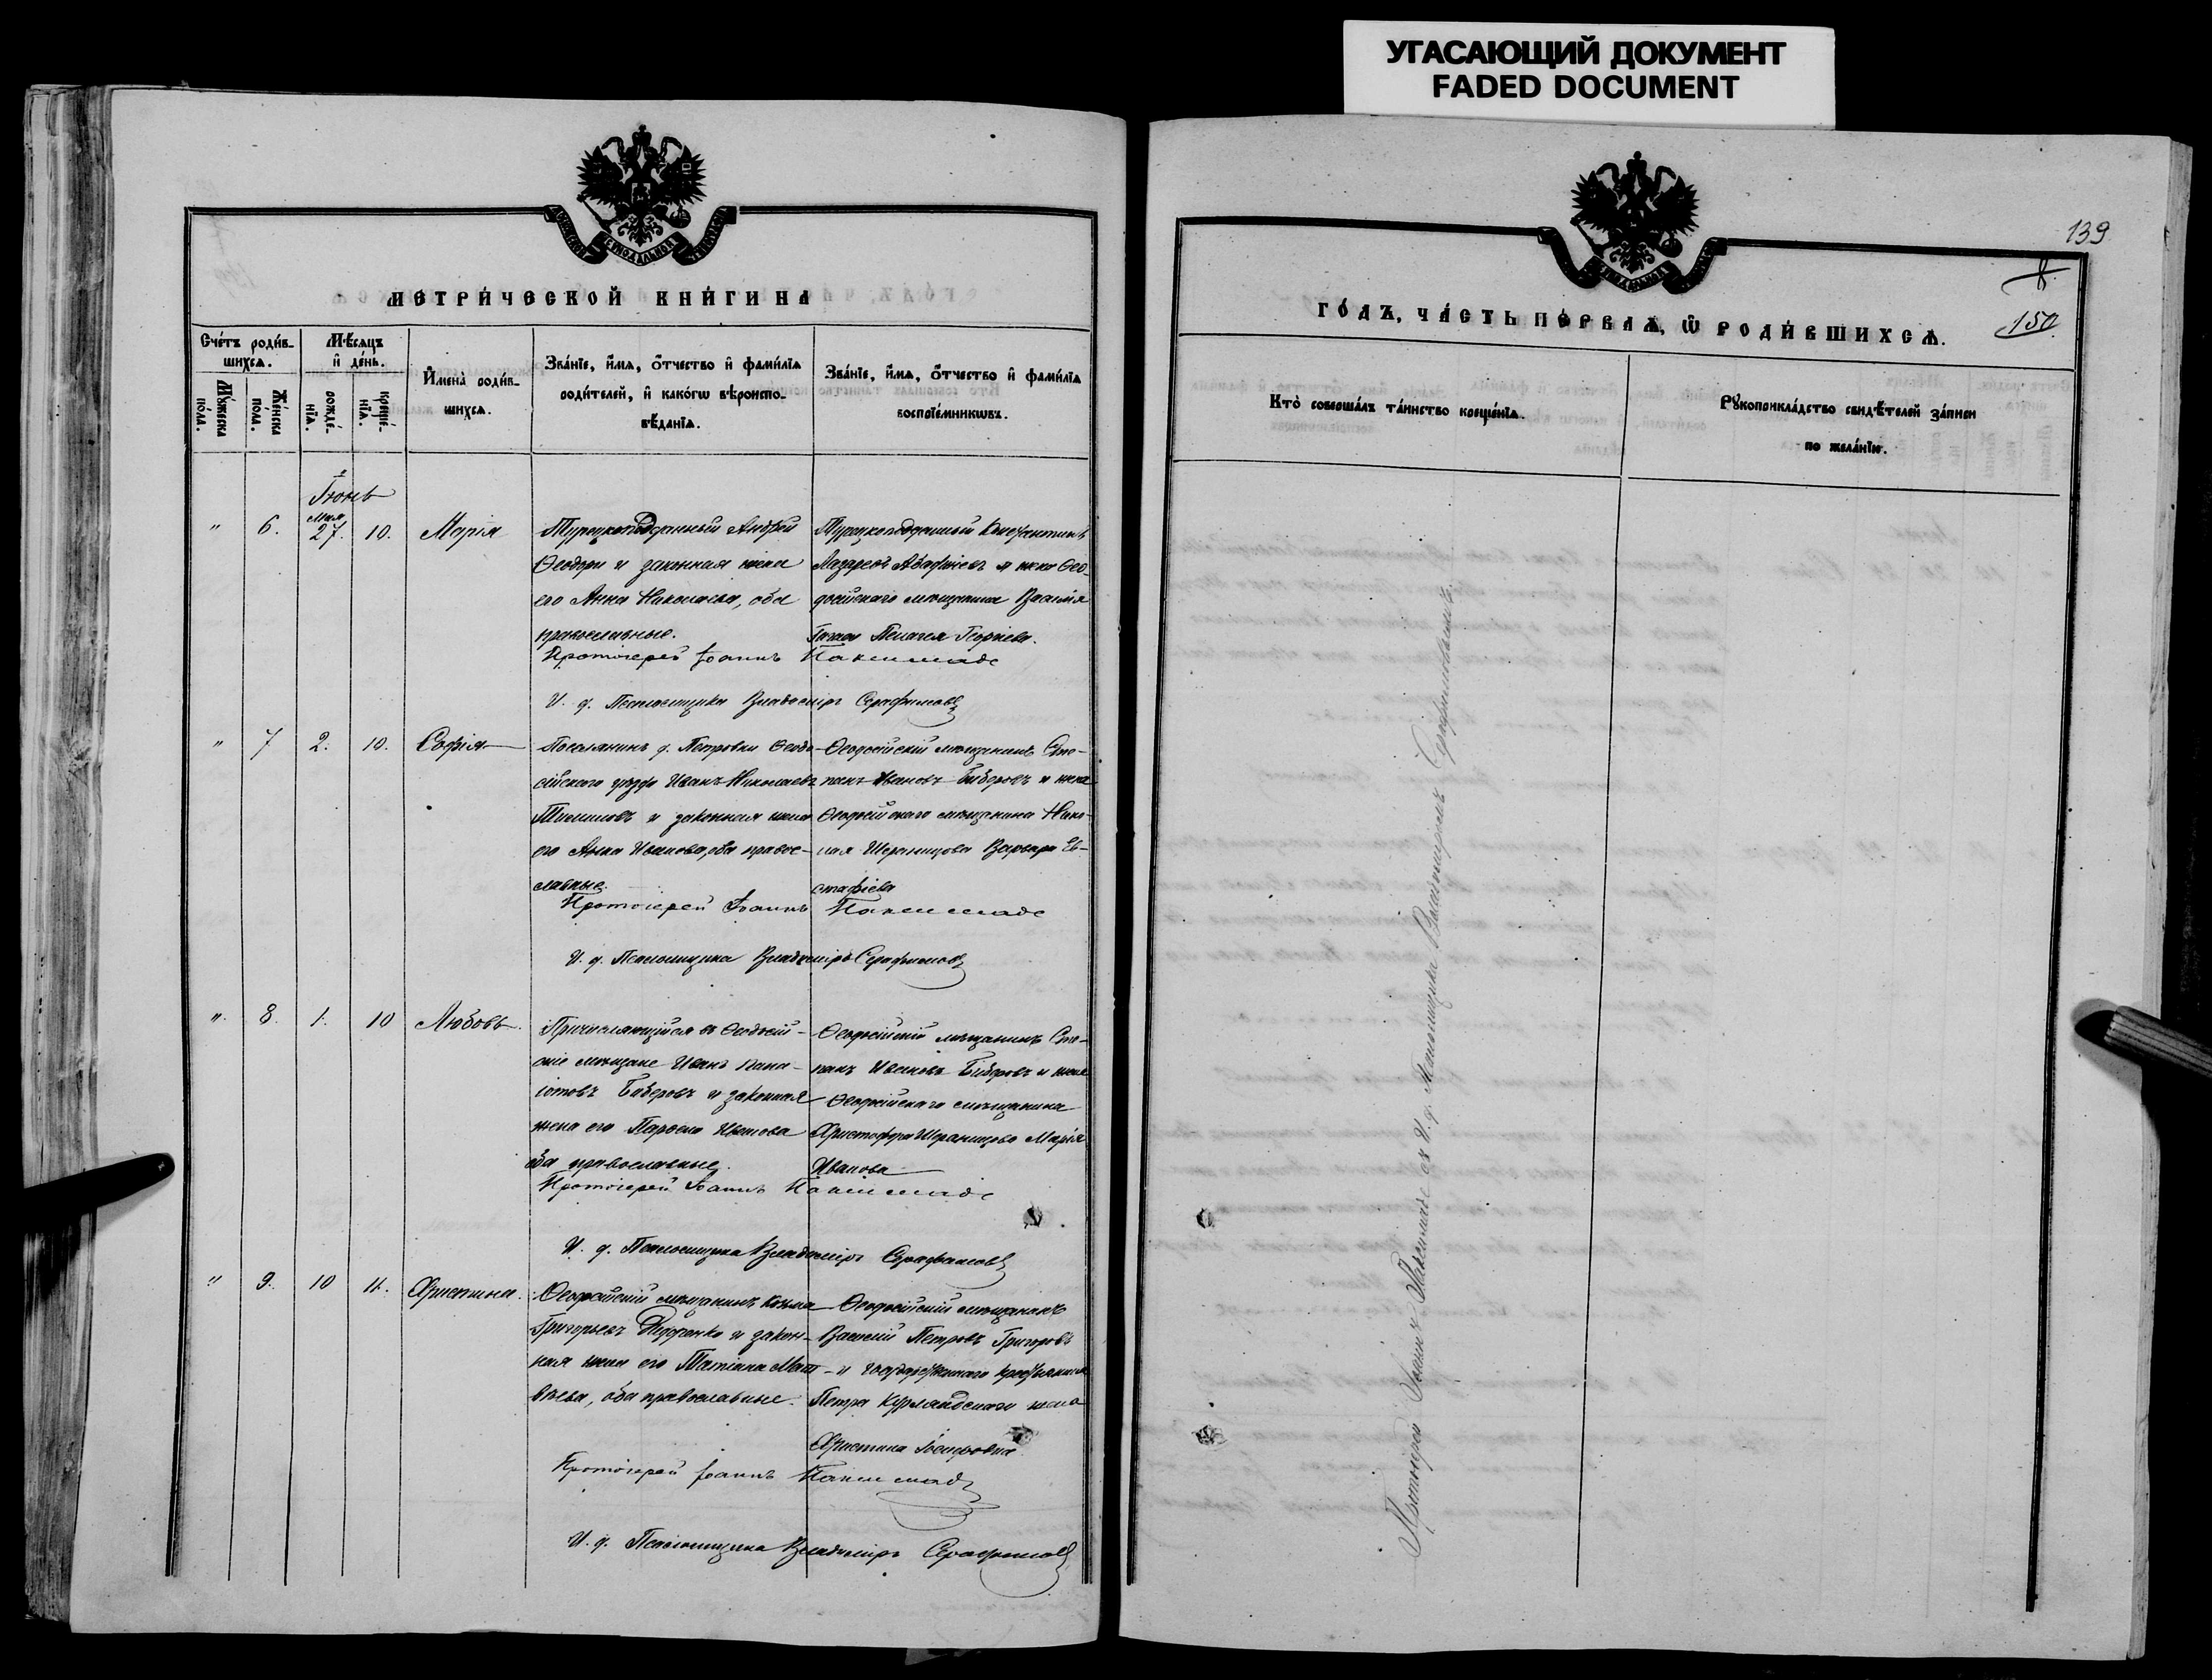 УГАСАЮЩИЙ ДОКУМЕНТ
FADED DOCUMENT
МЕТРИ́ЧЕСКОЙ КНИ́ГИ НА
Сче́тъ роди́в-
шихсѧ.
Мꙋ́жеска
по́ла.
Же́нска
по́ла.
Мѣ́сяцъ
и҆ де́нь.
рожде́-
нїѧ.
креще́-
нїѧ.
И҆мена̀ роди́в-
шихсѧ.
Зва́нїе, и҆́мѧ, ѻ҆́тчество и҆ фами́лїѧ
роди́телей, и҆ како́гѡ вѣроиспо-
вѣ́данїѧ.
Зва́нїе, и҆́мѧ, ѻ҆́тчество и҆ фами́лїѧ
воспрїе́мникѡвъ.
Іюнь
" 6. Мая 27. 10. Марія
Турецкоподданный Андрей
Ѳеодори и законная жена
его Анна Николаева, оба
православные.
Турецкоподданный Константинъ
Лазаревъ и жена Ѳео-
досійскаго мѣщанина Василія
Пелагея Георгіева.
Протоіерей Іоаннъ
И. д. Псаломщика Владиміръ Серафимовъ
" 7 2. 10. Софія
Поселянинъ д. Петровки Ѳеодо-
сійскаго уѣзда Иванъ Николаевъ
и законная жена
его Анна Иванова, оба право-
славные.
Ѳеодосійскій мѣщанинъ Сте-
панъ Ивановъ Биберовъ и жена
Ѳеодосійскаго мѣщанина Нико-
лая Шеранцова Варвара Ев-
стафіева
Протоіерей Іоаннъ
И. д. Псаломщика Владиміръ Серафимовъ
". 8. 1. 10 Любовь.
Причисляющійся въ Ѳеодосій-
скіе мѣщане Иванъ Пана-
іотовъ Биберовъ и законная
жена его Иванова
оба православные.
Ѳеодосійскій мѣщанинъ Сте-
панъ Ивановъ Биберовъ и жена
Ѳеодосійскаго мѣщанина
Христофора Шеранцова Марія
Иванова
Протоіерей Іоаннъ
И. д. Псаломщика Владиміръ Серафимовъ
" 9. 10 11. Христина.
Ѳеодосійскій мѣщанинъ Козьма
Григорьевъ и закон-
ная жена его Татіана Мат-
вѣева, оба православные.
Ѳеодосійскій мѣщанинъ
Василій Петровъ Григоровъ
и государственнаго крестьянина
Петра Курляндскаго жена
Христина Іосифовна
Протоіерей Іоаннъ
И. д. Псаломщика Владиміръ Серафимовъ
139
8.
150
ГО́ДЪ, ЧА́СТЬ ПЕ́РВАѦ, Ѡ҆ РОДИ́ВШИХСѦ.
Кто̀ соверша́лъ та́инство креще́нїѧ.
Рꙋкоприкла́дство свидѣ́телей за́писи
по жела́нїю.
Протоіерей Іоаннъ съ И. д. Псаломщика Владиміромъ Серафимовымъ.